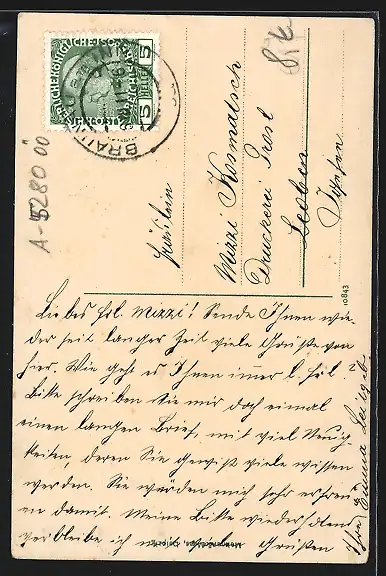 5 HELLER 5
BRAUNAU
8 K
A-5280 00
Fräulein
Mizzi Kosmatsch
Druckerei Prosl
Leoben
10843
Liebes Frl. Mizzi! Sende Ihnen wie,
der seit langer Zeit viele Grüße von
hier. Wie geht es Ihnen immer l. Frl.?
Bitte schreiben Sie mir doch einmal
einen langen Brief, mit viel Neuig,
keiten, deren Sie gewiß viele wissen
werden. Sie würden mich sehr erfreu,
en damit. Meine Bitte wiederholend
verbleibe ich mit vielen Grüßen
Ihre Emma